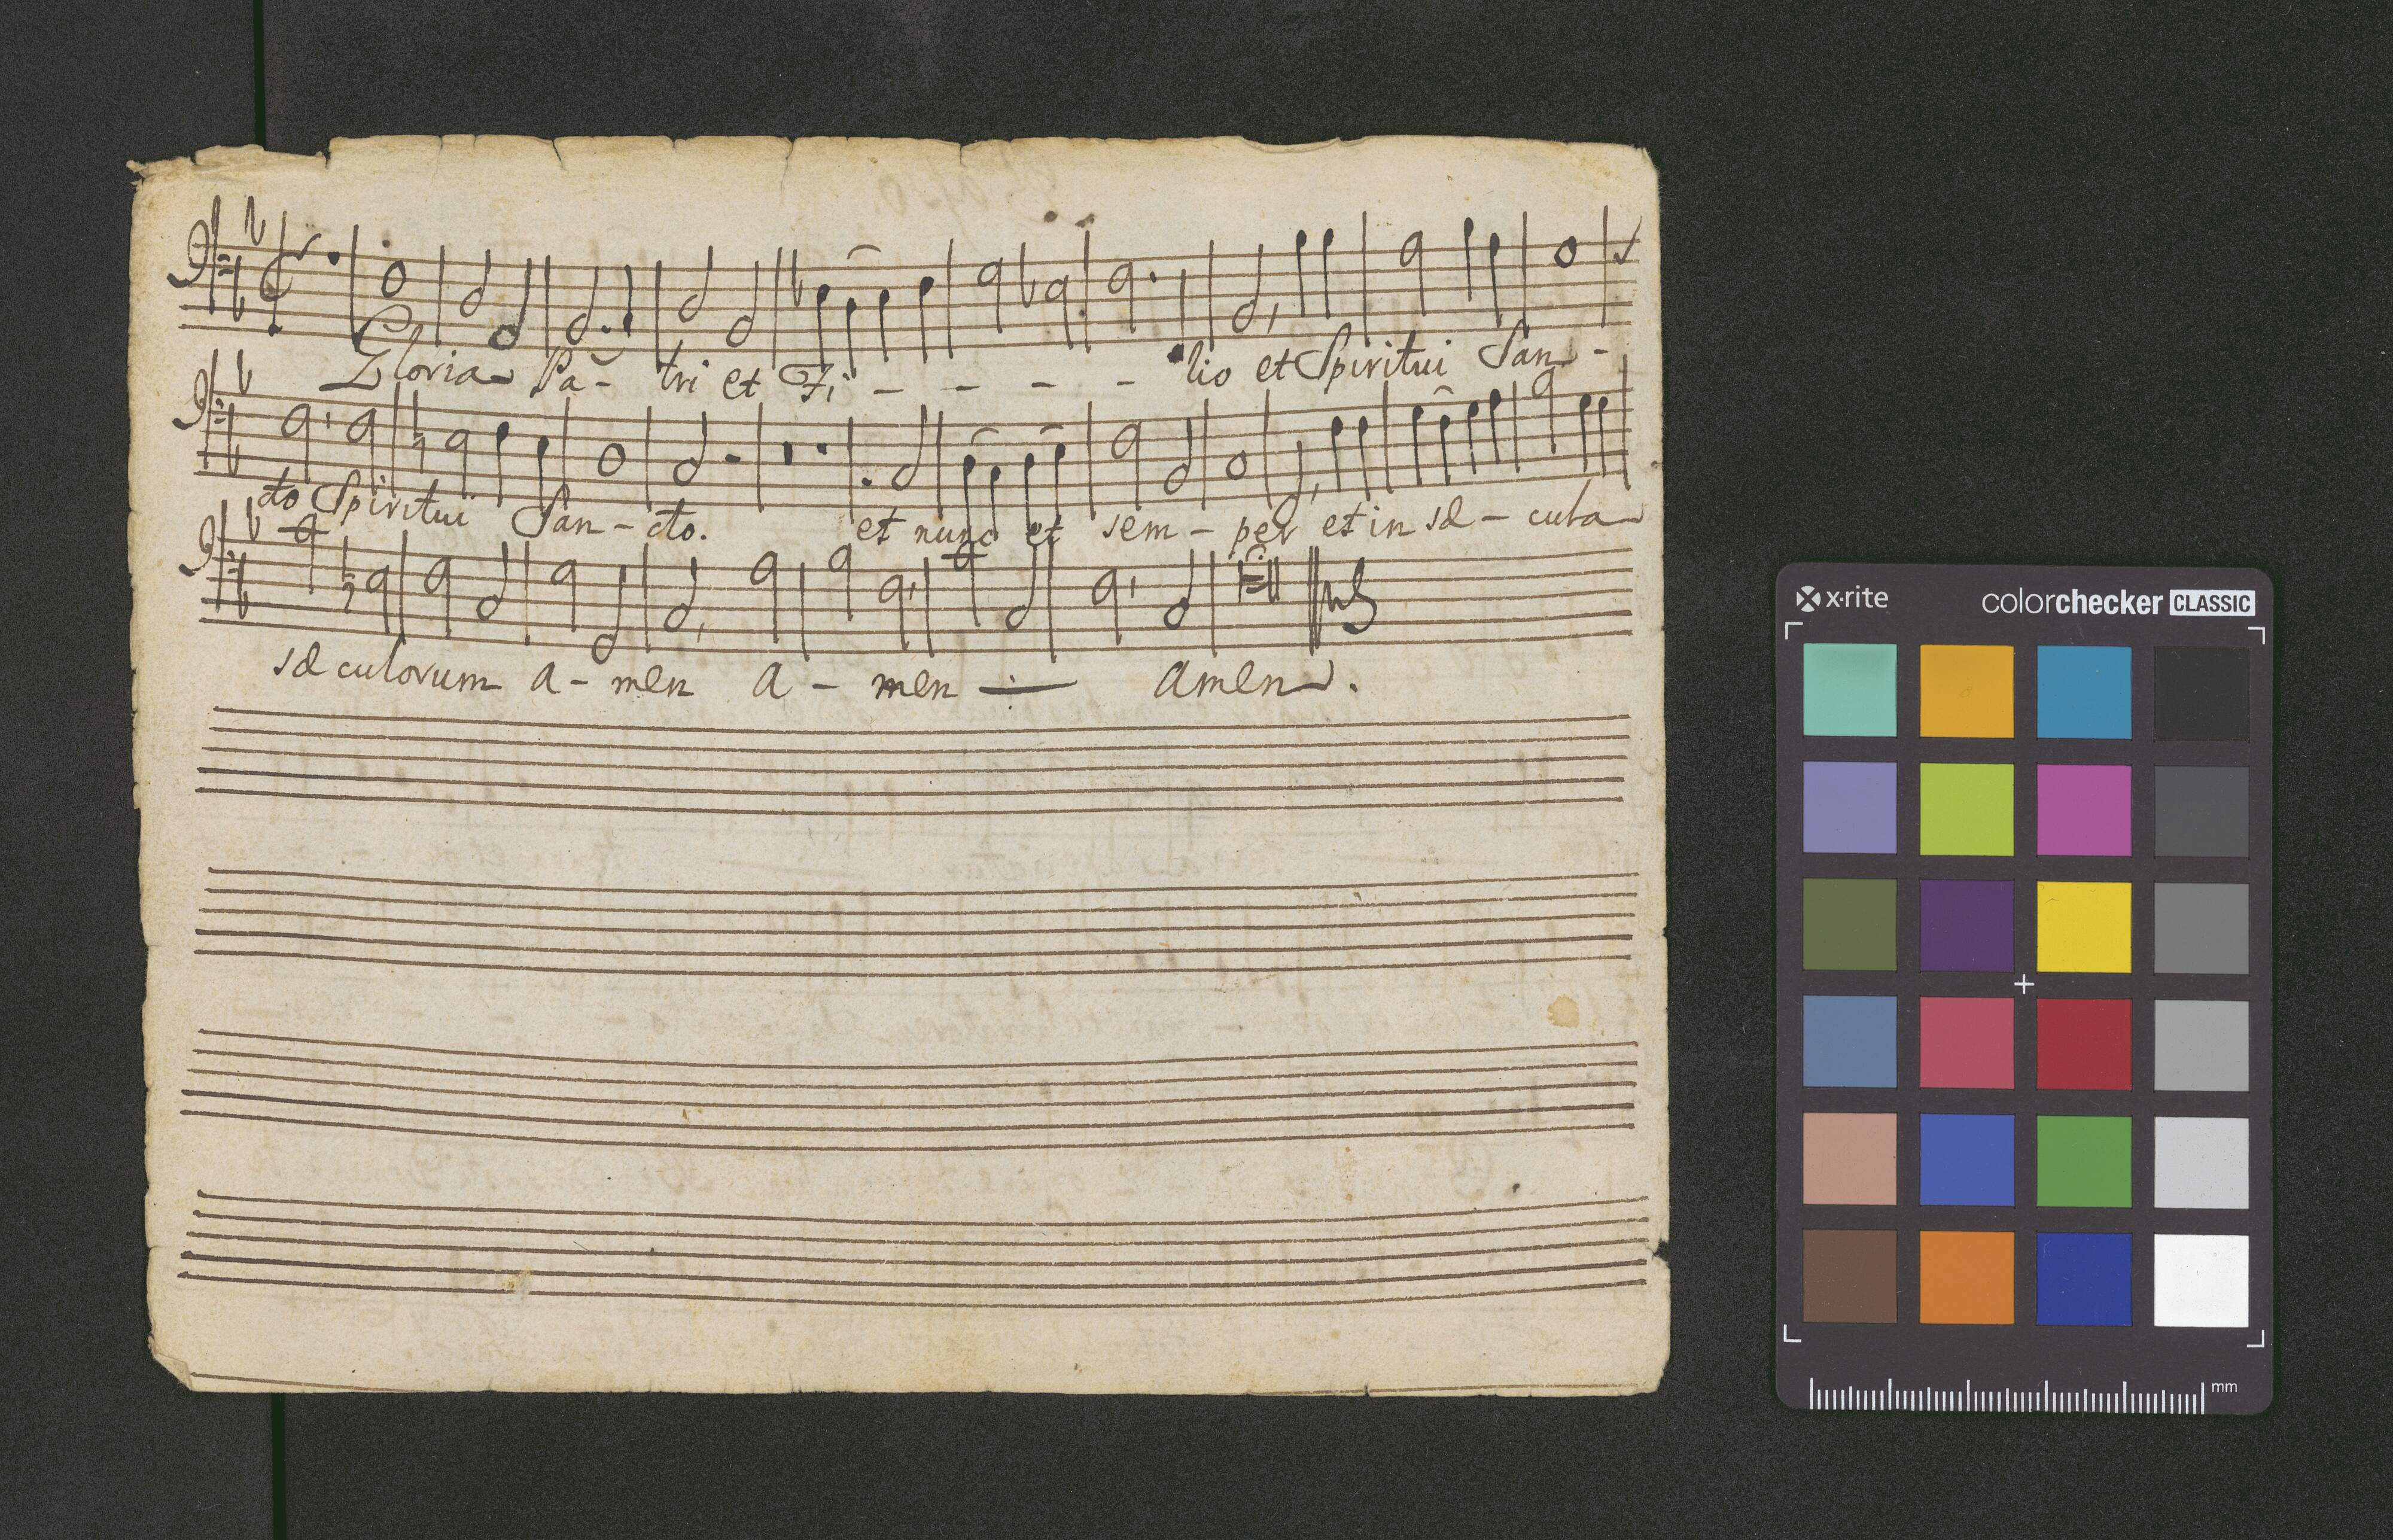 Gloria Pa - tri et Fi - - - - - lio et Spiritui San -
cto Spiritui San - cto. et nunc et sem - per et in sæ - cula
sæculorum a - men a - men Amen.
x·rite colorchecker CLASSIC
mm